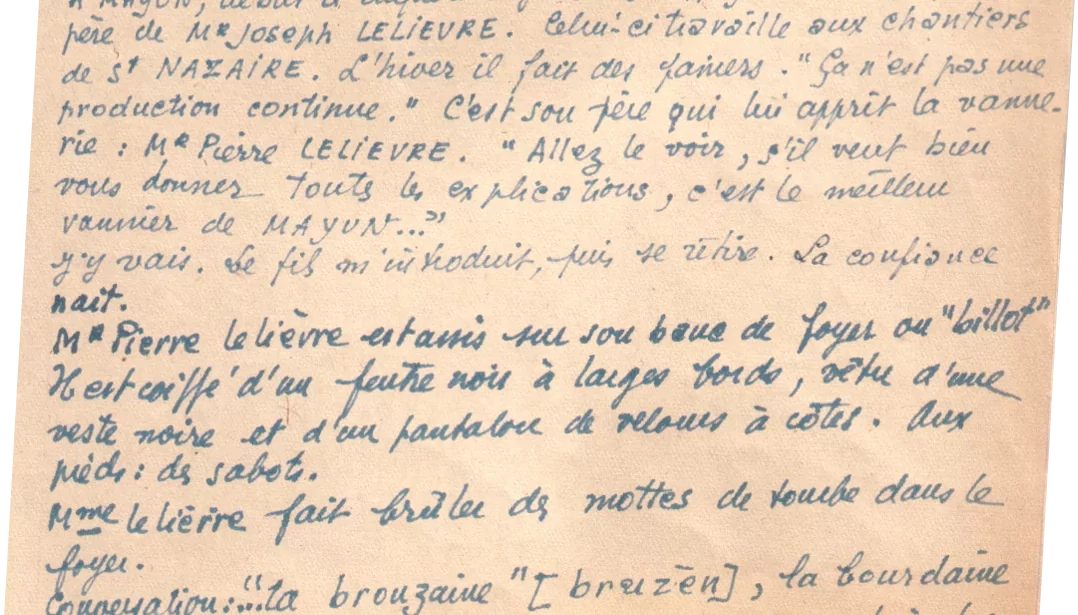 A MAYUN, début
père de Mʳ Joseph LELIEVRE. Celui-ci travaille aux chantiers
de Sᵗ NAZAIRE. L'hiver il fait des paniers. "Ça n'est pas une
production continue." C'est son père qui lui apprit la vanne-
rie : Mʳ Pierre LELIEVRE. "Allez le voir, s'il veut bien
vous donner toutes les explications, c'est le meilleur
vannier de MAYUN..."
J'y vais. Le fils m'introduit, puis se retire. La confiance
nait.
Mʳ Pierre Lelièvre est assis sur son banc de foyer ou "billot"
Il est coiffé d'un feutre noir à larges bords, vêtu d'une
veste noire et d'un pantalon de velours à côtes. Aux
pieds : des sabots.
Mme Lelièvre fait brûler des mottes de tourbe dans le
foyer.
Conversation : "...la brouzaine" [bruzèn], la bourdaine